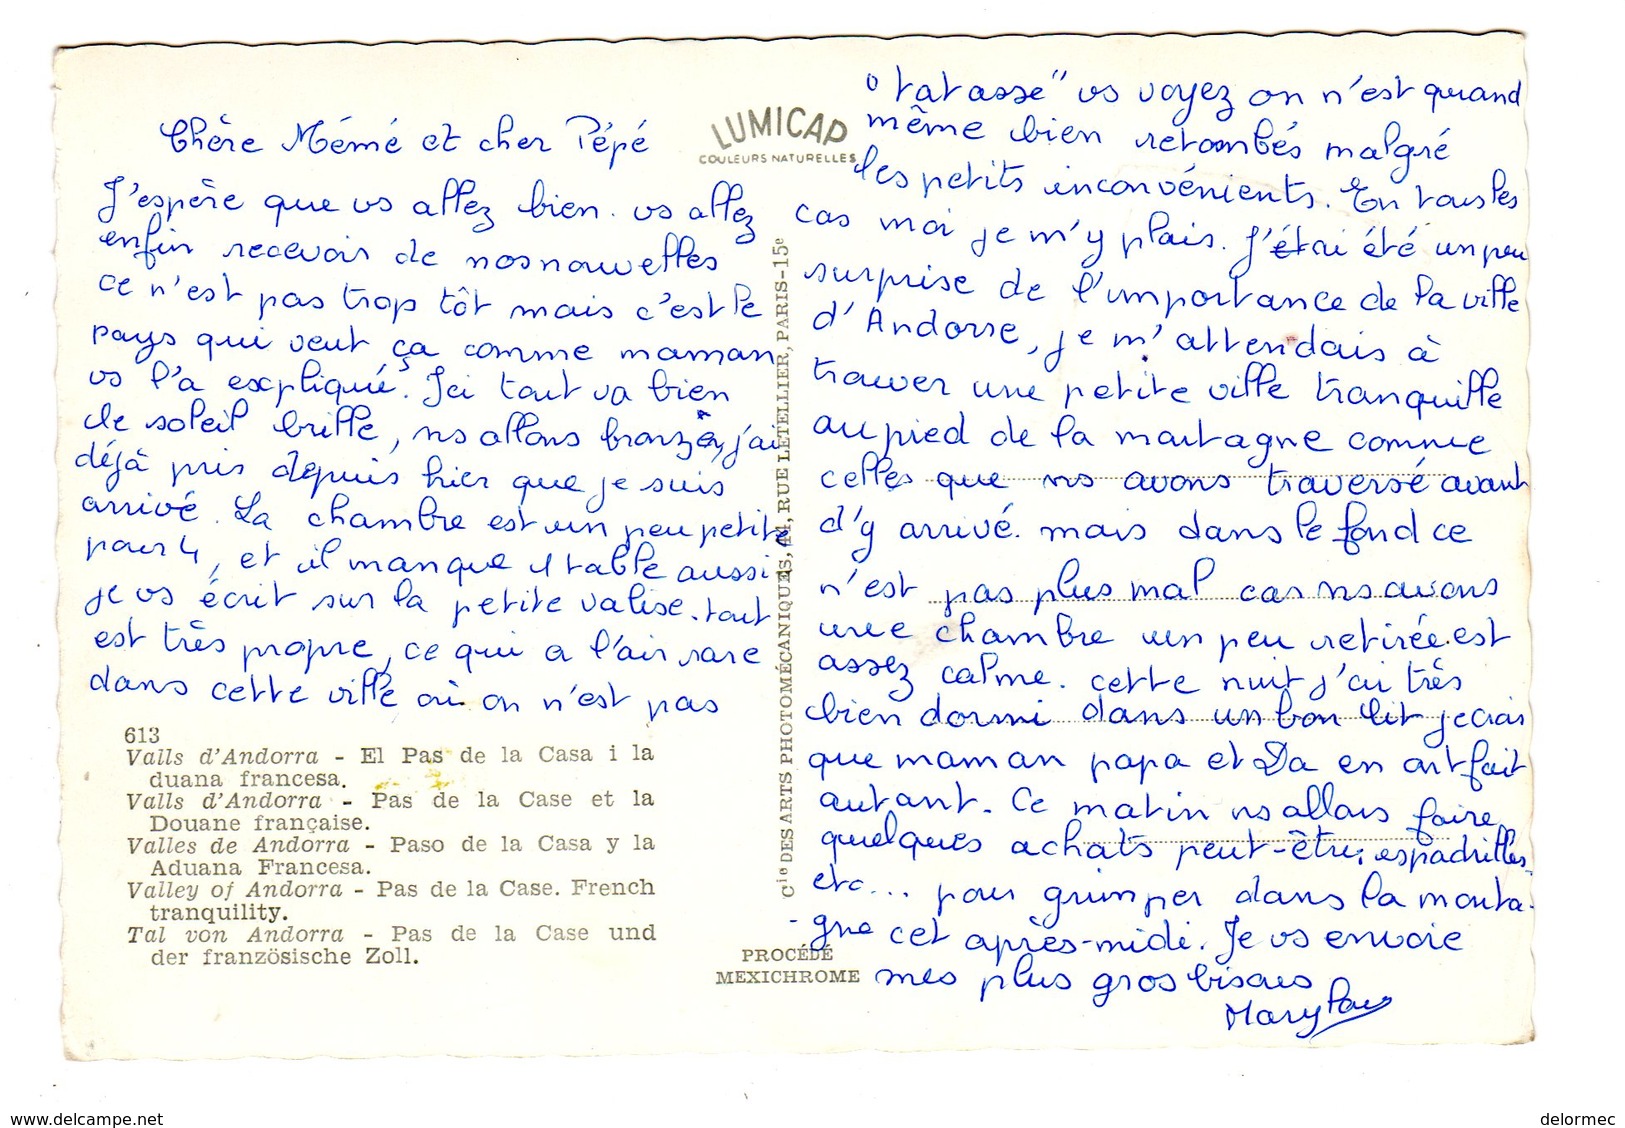 Chère Mémé et cher Pépé
J'espère que vs allez bien. vs allez
enfin recevoir de nos nouvelles
ce n'est pas trop tôt mais c'est le
pays qui veut ça comme maman
vs l'a expliqué. Ici tout va bien
le soleil brille, ns allons bronzer, j'ai
déjà pris depuis hier que je suis
arrivé. La chambre est un peu petite
pour 4, et il manque 1 table aussi
je vs écrit sur la petite valise. tout
est très propre, ce qui a l'air rare
dans cette ville où on n'est pas
613
Valls d'Andorra - El Pas de la Casa i la
duana francesa.
Valls d'Andorra - Pas de la Case et la
Douane française.
Valles de Andorra - Paso de la Casa y la
Aduana Francesa.
Valley of Andorra - Pas de la Case. French
tranquility.
Tal von Andorra - Pas de la Case und
der französische Zoll.
LUMICAP
COULEURS NATURELLES
Cie DES ARTS PHOTOMÉCANIQUES, 44, RUE LETELLIER, PARIS-15e
PROCÉDÉ
MEXICHROME
"tatasse" vs voyez on n'est quand
même bien retombés malgré
les petits inconvénients. En tous les
cas moi je m'y plais. J'étai été un peu
surprise de l'importance de la ville
d'Andorre, je m'attendais à
trouver une petite ville tranquille
au pied de la montagne comme
celles que ns avons traversé avant
d'y arrivé. mais dans le fond ce
n'est pas plus mal car ns avons
une chambre un peu retirée. est
assez calme. cette nuit j'ai très
bien dormi dans un bon lit je crois
que maman papa et Da en ont fait
autant. Ce matin ns allons faire
quelques achats peut-être, espadrilles
etc... pour grimper dans la monta-
-gne cet après-midi. Je vs envoie
mes plus gros bisous
Marylou
www.delcampe.net
delormec